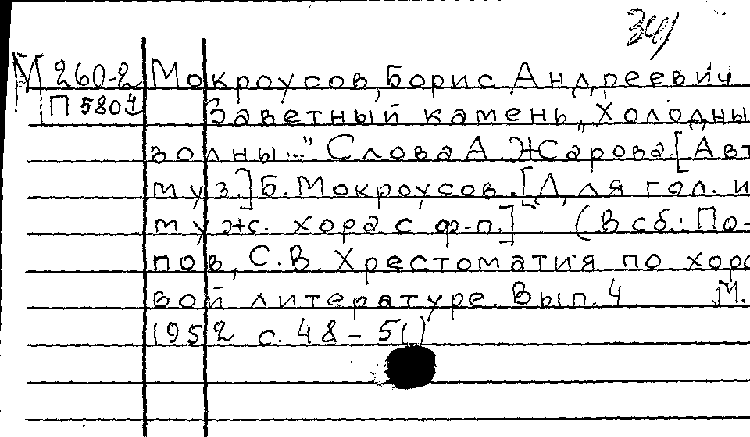 34)
М 260-2 Мокроусов, Борис Андреевич
П 5807 Заветный камень „Холодны
волны..." Слова А. Жарова. [Авт.
муз.] Б. Мокроусов. [Для гол. и
муж. хора с ф-п.] (В сб.: По-
пов, С.В. Хрестоматия по хоро
вой литературе. Вып. 4 М.
1952 с. 48-51)